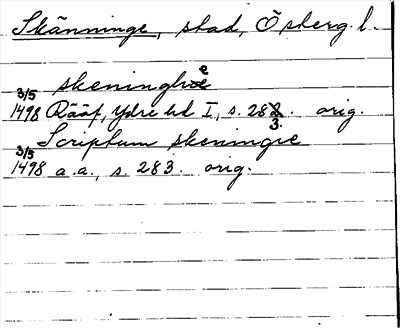 Skänninge, stad, Österg. l.
skeninghe
3/5 1498 Rääf, Ydre hd I, s. 283. orig.
Scriptum skeningie
3/5 1498 a.a., s. 283. orig.